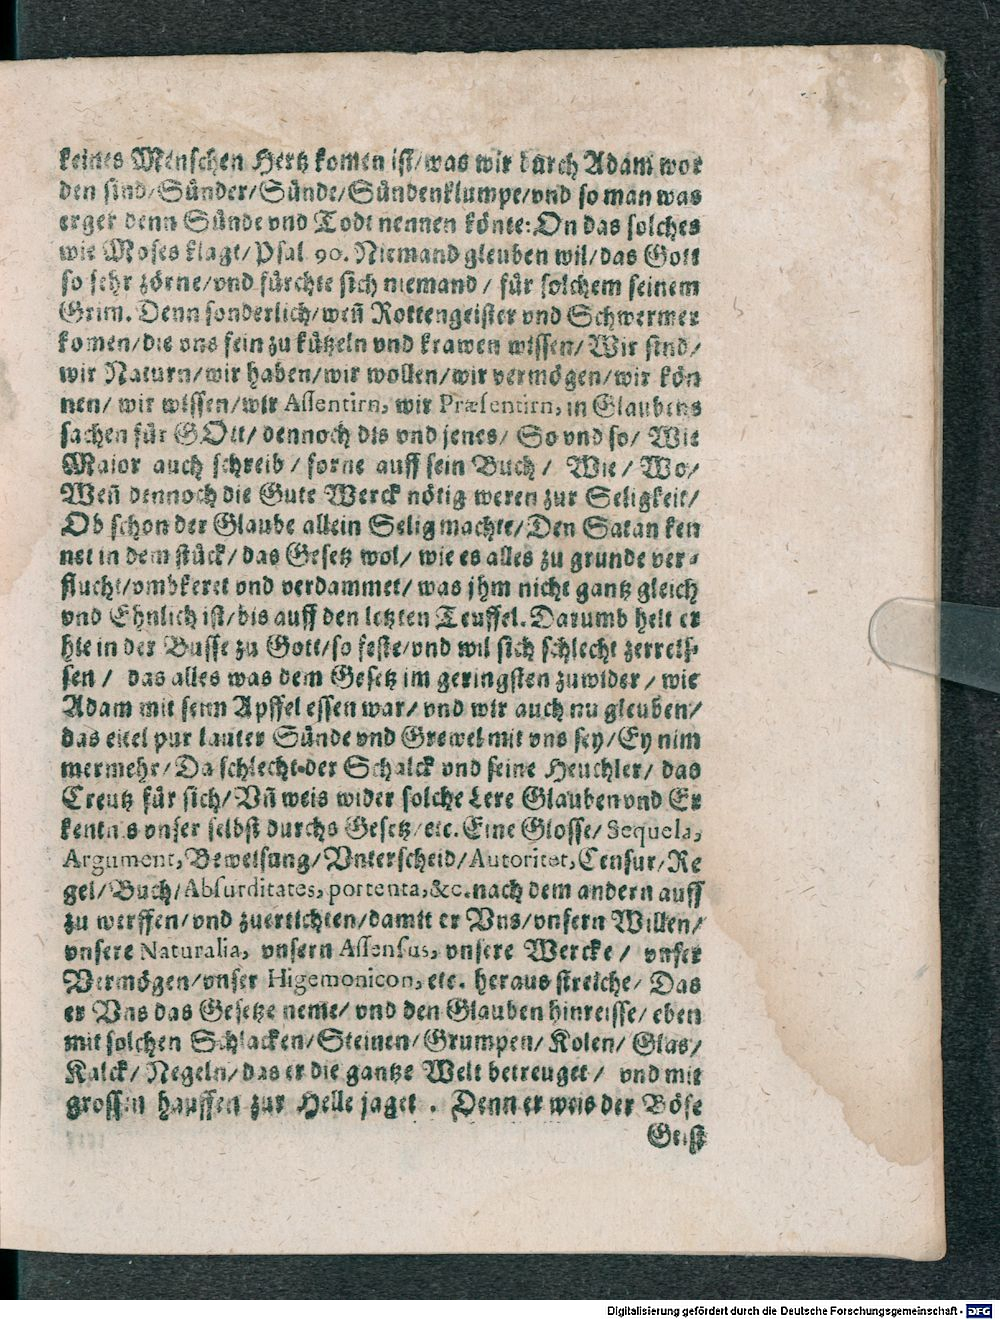 keines Menschen Hertz komen ist/was wir durch Adam wor
den sind/Sünder/Sünde/Sündenklumpe/vnd so man was
erger denn Sünde vnd Todt nennen könte: On das solches
wie Moses klagt/Psal 90. Niemand gleuben wil/das Gott
so sehr zörne/vnd fürchte sich niemand/ für solchem seinem
Grim. Denn sonderlich/weñ Rottengeister vnd Schwermer
komen/die vns fein zu kützeln vnd krawen wissen/ Wir sind/
wir Naturn/wir haben/wir wollen/wir vermögen/wir kön
nen/ wir wissen/wir Assentirn, wir Præsentirn, in Glaubens
sachen für GOtt/ dennoch dis vnd jenes/ So vnd so/ Wie
Maior auch schreib/ forne auff sein Buch/ Wie/ Wo/
Weñ dennoch die Gute Werck nötig weren zur Seligkeit/
Ob schon der Glaube allein Selig machte/Den Satan ken
net in dem stück/ das Gesetz wol/ wie es alles zu grunde ver-
flucht/vmbkeret vnd verdammet/ was jhm nicht gantz gleich
vnd Ehnlich ist/bis auff den letzten Teuffel. Darumb helt er
hie in der Busse zu Gott/so feste/vnd wil sich schlecht zerreis-
sen/ das alles was dem Gesetz im geringsten zuwider/ wie
Adam mit seinn Apffel essen war/ vnd wir auch nu gleuben/
das eitel pur lauter Sünde vnd Grewel mit vns sey/Ey nim
mermehr/ Da schlecht der Schalck vnd seine Heuchler/ das
Creutz für sich/ Vñ weis wider solche Lere Glauben vnd Er
kentnis vnser selbst durchs Gesetz/etc. Eine Glosse/ Sequela,
Argument, Beweisung/Vnterscheid/Autoritet, Censur/Re
gel/Buch/Absurditates, portenta, &c. nach dem andern auff
zu werffen/vnd zuertichten/damit er Vns/vnsern Willen/
vnsere Naturalia, vnsern Assensus, vnsere Wercke/ vnser
Vermögen/vnser Higemonicon, etc. heraus streiche/ Das
er Vns das Gesetze neme/ vnd den Glauben hinreisse/ eben
mit solchen Schlacken/Steinen/Grumpen/ Kolen/ Glas/
Kalck/ Negeln/das er die gantze Welt betreuget/ vnd mit
grossen hauffen zur Helle jaget. Denn er weis der Böse
Geist
Digitalisierung gefördert durch die Deutsche Forschungsgemeinschaft - DFG